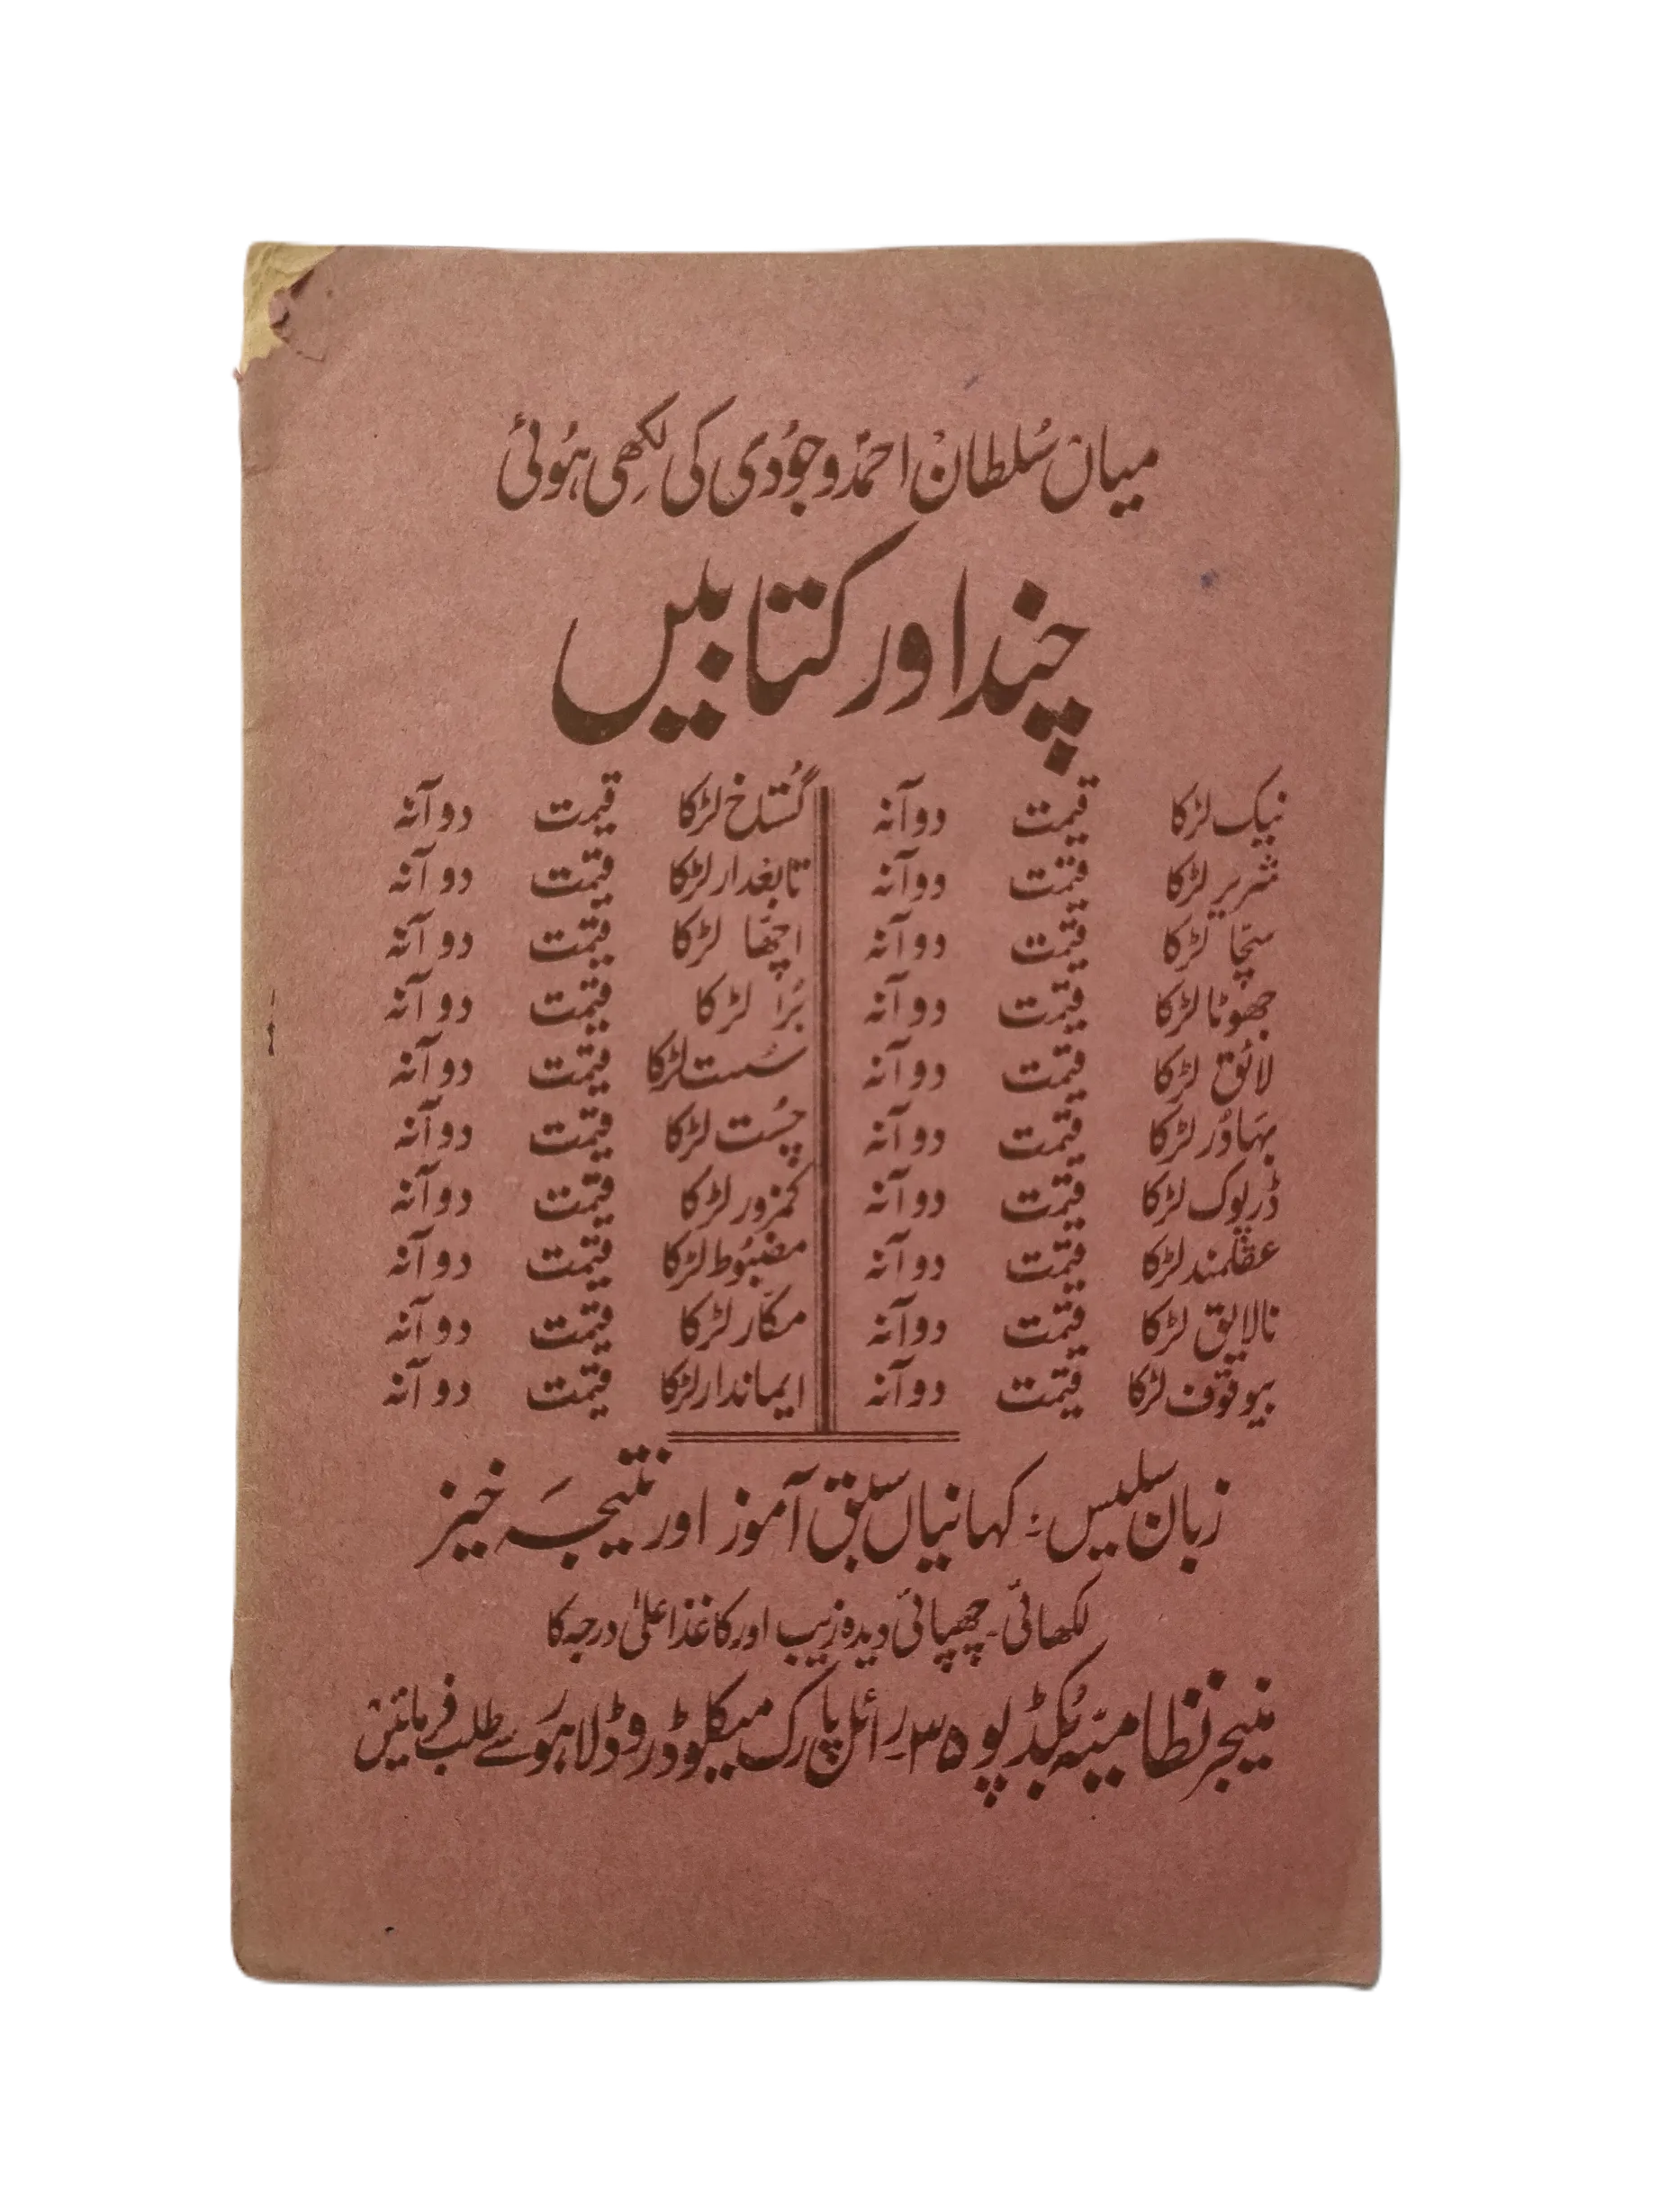 میاں سُلطان احمدؐ وجُودی کی لکھِی ہُوئی
چند اور کتابیں
نیک لڑکا قیمت دو آنہ
شریر لڑکا قیمت دو آنہ
سچّا لڑکا قیمت دو آنہ
جھوٹا لڑکا قیمت دو آنہ
لائق لڑکا قیمت دو آنہ
بہادُر لڑکا قیمت دو آنہ
ڈرپوک لڑکا قیمت دو آنہ
عقلمند لڑکا قیمت دو آنہ
نالایق لڑکا قیمت دو آنہ
بیوقوف لڑکا قیمت دو آنہ
گُستاخ لڑکا قیمت دو آنہ
تابعدار لڑکا قیمت دو آنہ
اچھّا لڑکا قیمت دو آنہ
بُرا لڑکا قیمت دو آنہ
سُست لڑکا قیمت دو آنہ
چُست لڑکا قیمت دو آنہ
کمزور لڑکا قیمت دو آنہ
مضبُوط لڑکا قیمت دو آنہ
مکّار لڑکا قیمت دو آنہ
ایماندار لڑکا قیمت دو آنہ
زبان سلیس؛ کہانیاں سبق آموز اور نتیجہ خیز
لکھائی۔ چھپائی دیدہ زیب اور کاغذ اعلیٰ درجہ کا
منیجر نظامیہ بُکڈپو ۳۵ رائل پارک میکلوڈ روڈ لاہور سے طلب فرمائیں